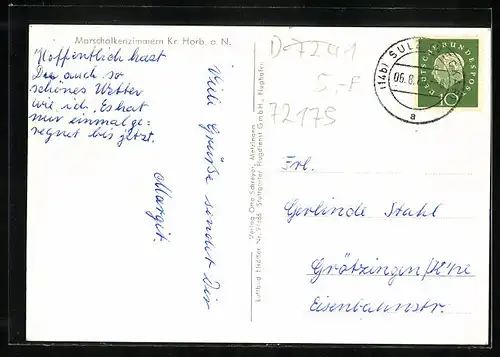 Marschalkenzimmern Kr. Horb a. N.
Hoffentlich hast
Du auch so
schönes Wetter
wie ich. Es hat
nur einmal ge=
regnet bis jetzt.
Viele Grüße sendet Dir
Margit.
Verlag Otto Schreyer, Metzingen
Stuttgarter Flugdienst GmbH., Flughafen
D-7241
5,-F
72175
(14b) SULZ
06.8.
a
DEUTSCHE BUNDESPOST
10
Frl.
Gerlinde Stahl
Grötzingen/
Eisenbahnstr.